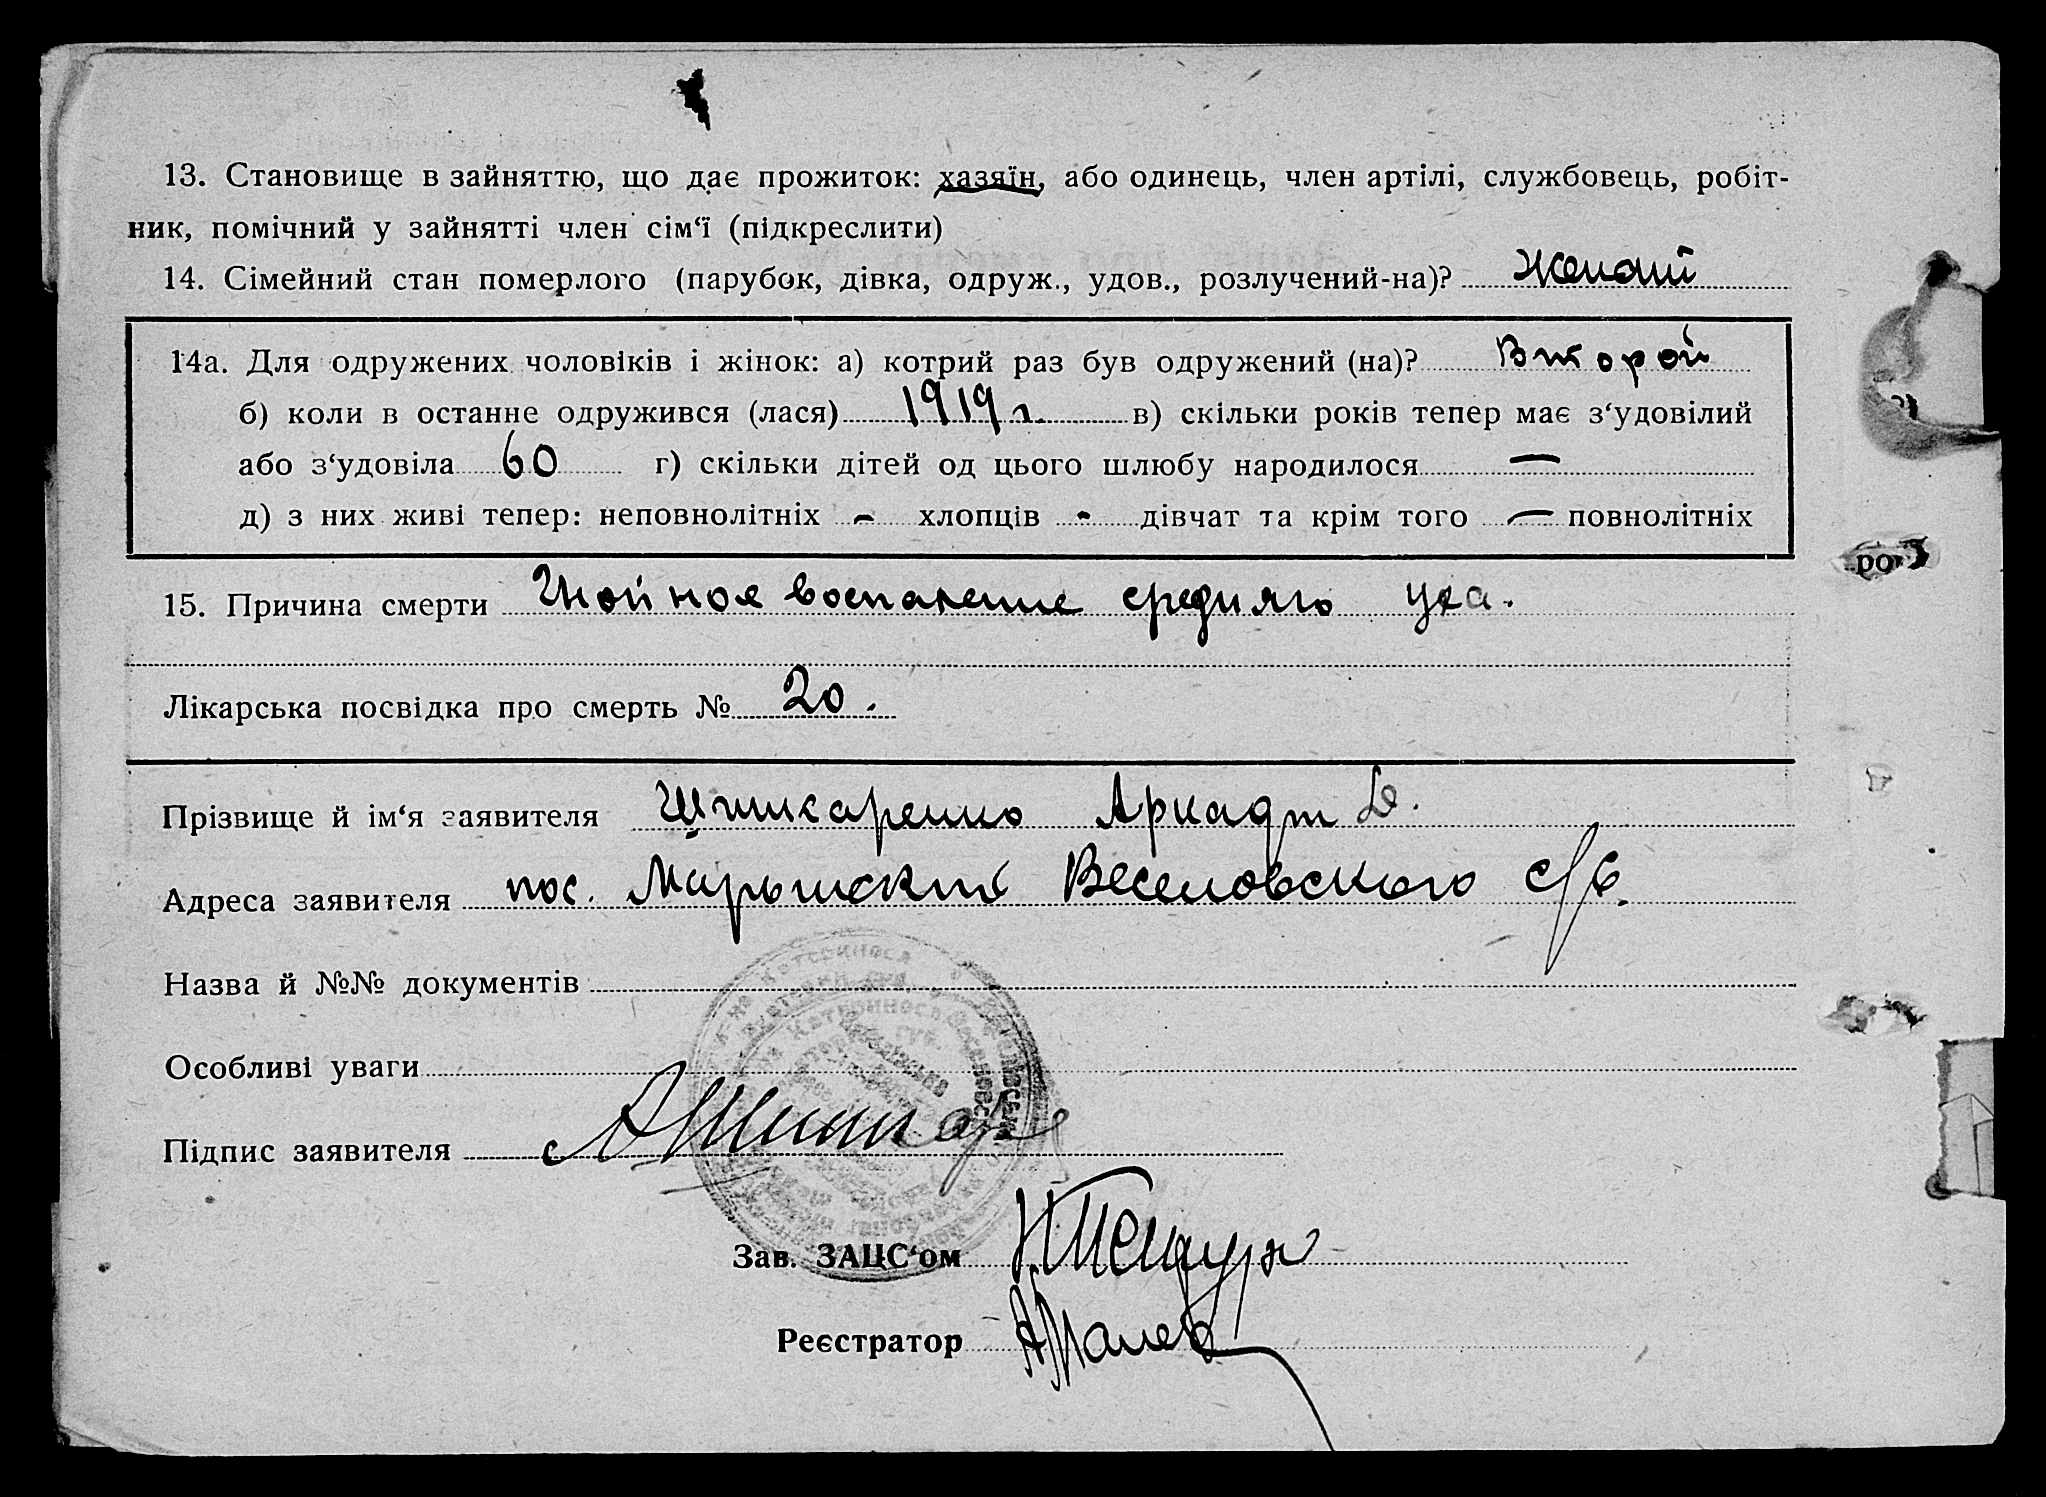 13. Становище в зайняттю, що дає прожиток: хазяїн, або одинець, член артілі, службовець, робіт-
ник, помічний у зайнятті член сім‘ї (підкреслити)
14. Сімейний стан померлого (парубок, дівка, одруж., удов., розлучений-на)? Женатий
14а. Для одружених чоловіків і жінок: а) котрий раз був одружений (на)? Второй
б) коли в останне одружився (лася) 1919 г. в) скільки років тепер має з‘удовілий
або з‘удовіла 60 г) скільки дітей од цього шлюбу народилося —
д) з них живі тепер: неповнолітніх - хлопців - дівчат та крім того — повнолітніх
15. Причина смерти Гнойное воспаление среднего уха.
Лікарська посвідка про смерть № 20.
Прізвище й ім‘я заявителя Аркадий
Адреса заявителя пос. Веселовского с/с.
Назва й №№ документів
Особливі уваги
Підпис заявителя
Зав. ЗАЦС‘ом
Реєстратор
ро